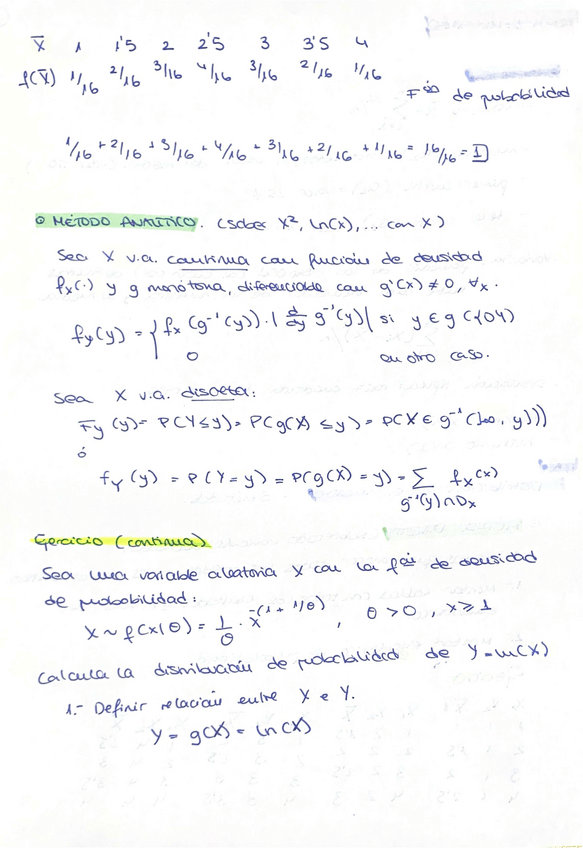 X̄ 1 1'5 2 2'5 3 3'5 4
f(X̄) 1/16 2/16 3/16 4/16 3/16 2/16 1/16
Fᵒⁿ de probabilidad
1/16 + 2/16 + 3/16 + 4/16 + 3/16 + 2/16 + 1/16 = 16/16 = 1
MÉTODO ANALÍTICO. (Sobre X², ln(X), ... con X)
Sea X v.a. continua con función de densidad
fx(·) y g monótona, diferenciable con g'(x) ≠ 0, ∀x.
fy(y) = { fx (g⁻¹(y)) · | d/dy g⁻¹(y) | si y ∈ g
0 en otro caso.
Sea X v.a. discreta:
Fy (y) = P(Y ≤ y) = P(g(X) ≤ y) = P(X ∈ g⁻¹(]∞, y)))
ó
fY (y) = P(Y = y) = P(g(X) = y) = Σ fX(x)
g⁻¹(y)∩Dx
Ejercicio (continua)
Sea una variable aleatoria X con la fᵒⁿ de densidad
de probabilidad:
X ~ f(x|θ) = 1/θ · x^-(1 + 1/θ) , θ > 0, x ≥ 1
Calcula la distribución de probabilidad de Y = ln(X)
1.- Definir relación entre X e Y.
Y = g(X) = ln(X)